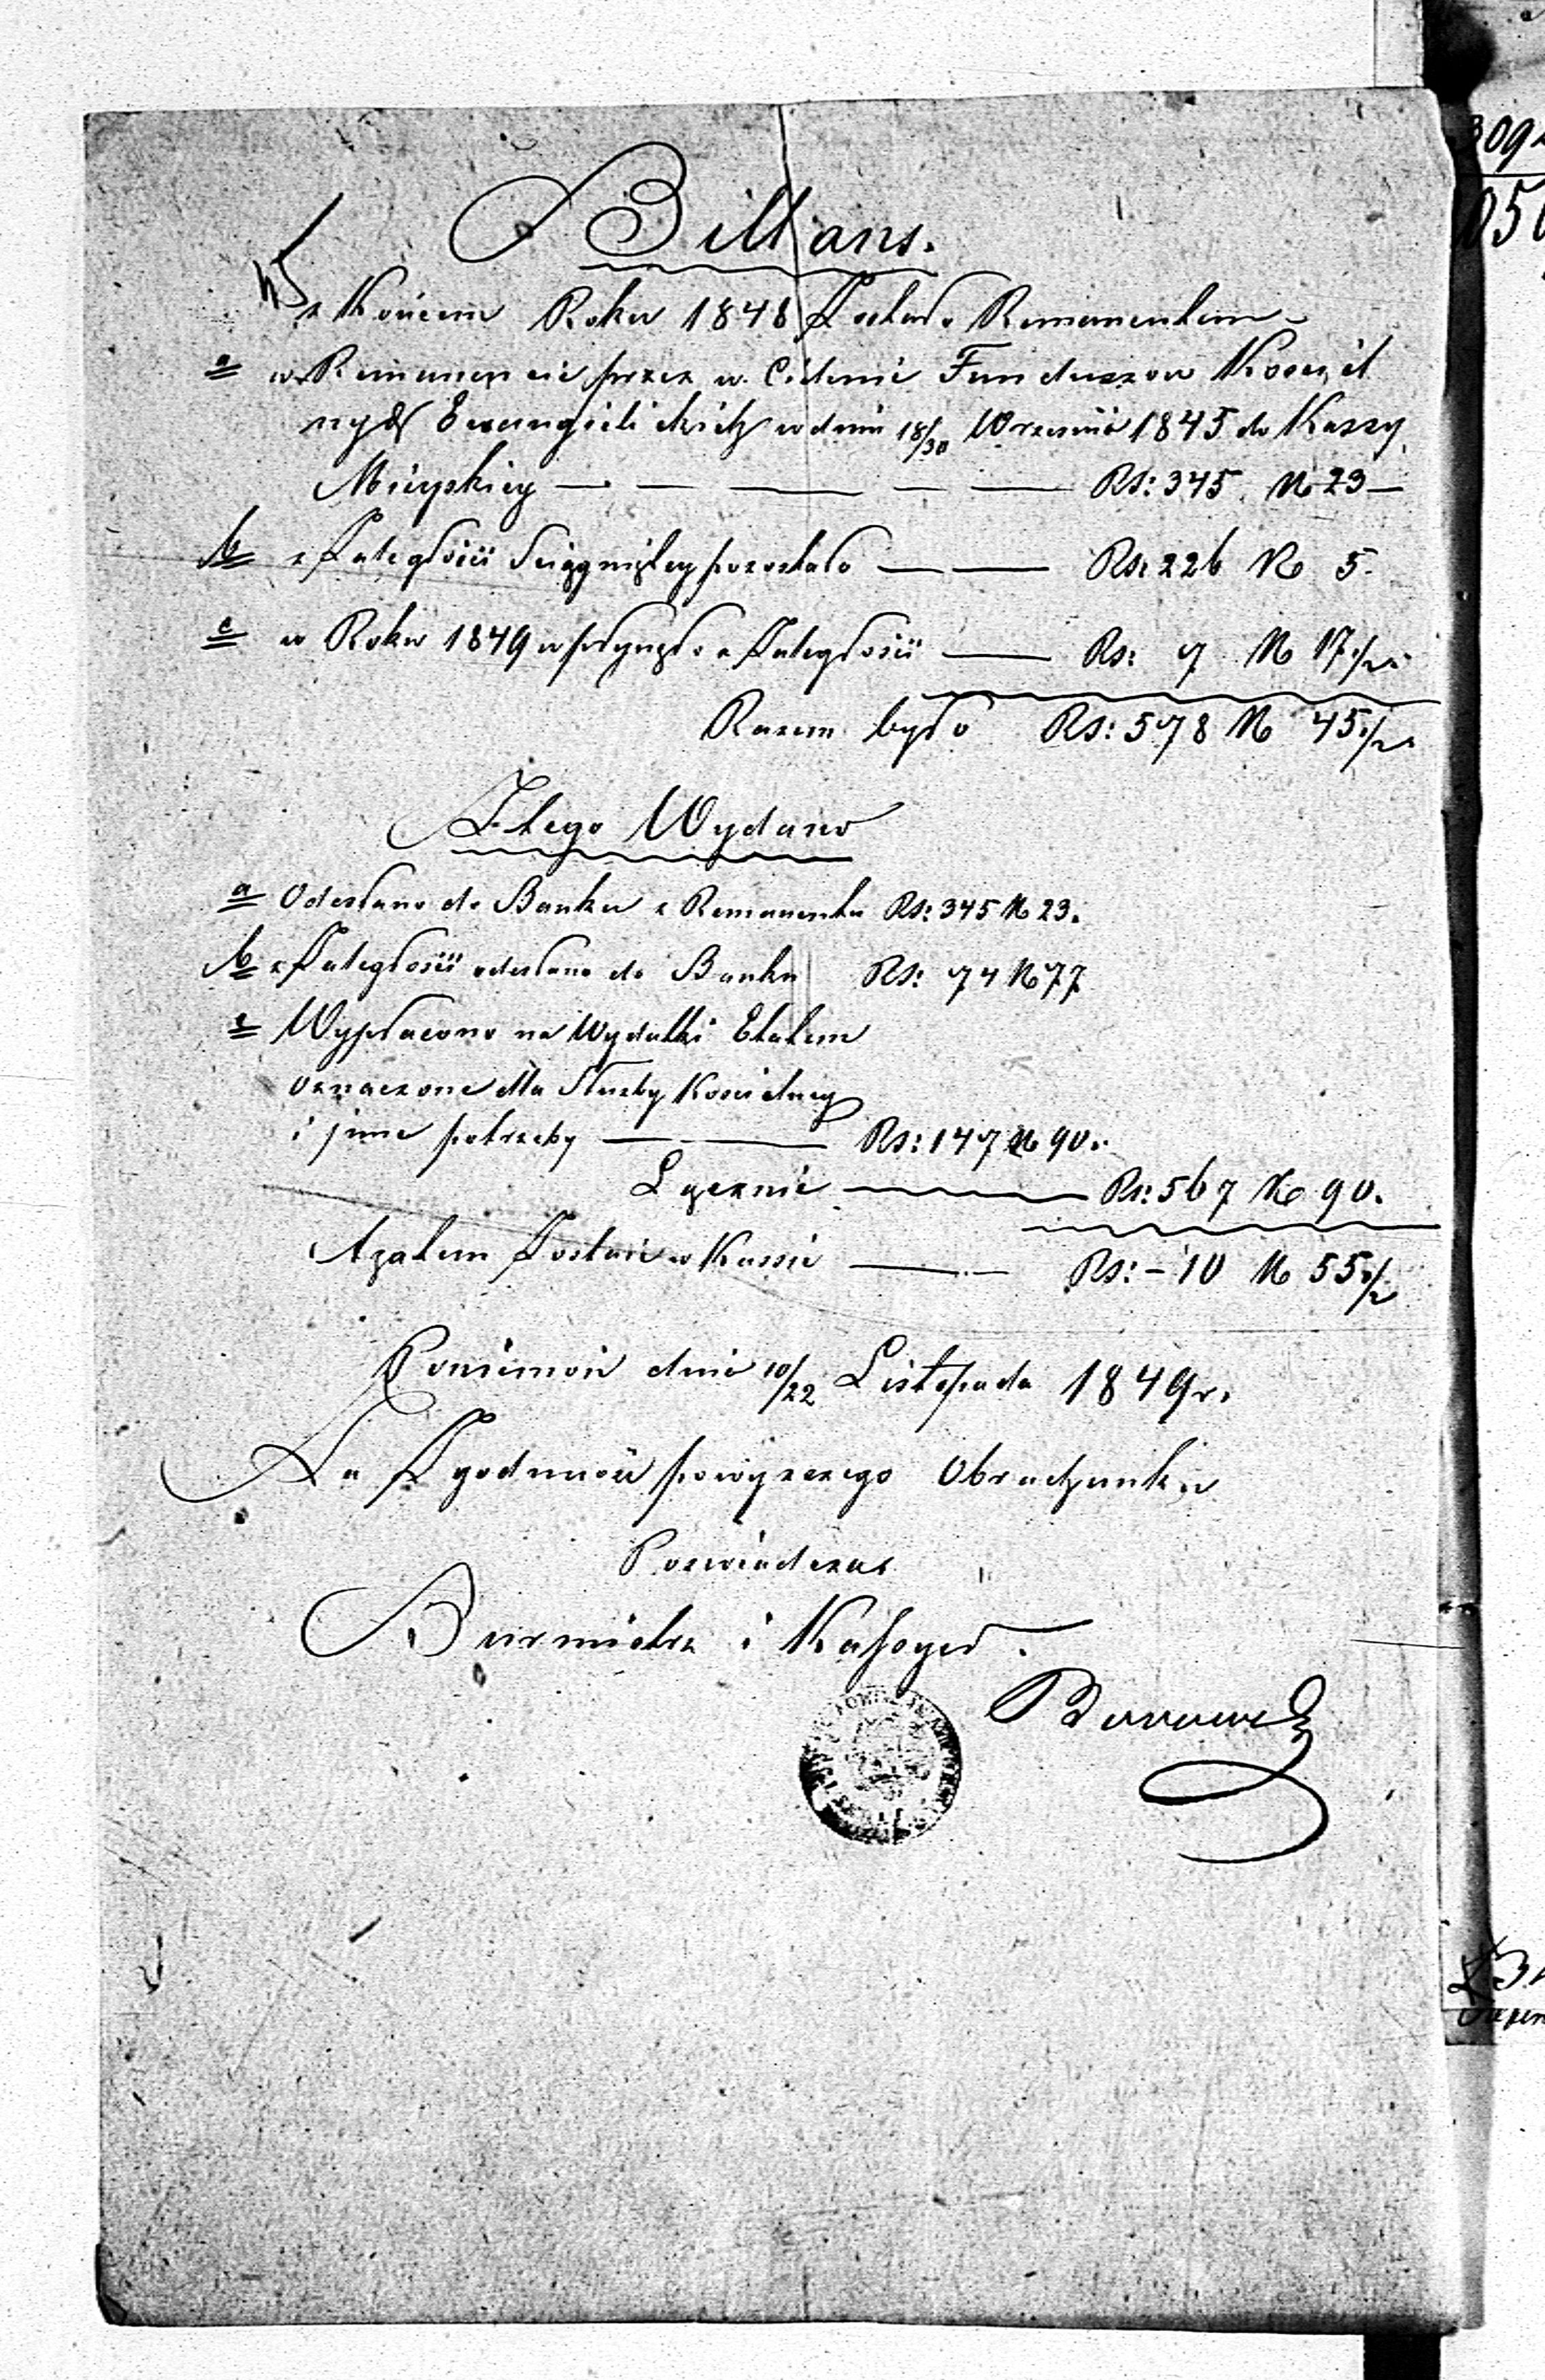 Billans.
z Końcem Roku 1848 Zostało Remanentem
a w Remanencie przez w. Cielenie Funduszow Kosciel
nych Ewangielickich w dniu 18/30 Wrzesnia 1845 do Kassy
Mieyskiey — — — — — Rs: 345 K 23 —
b z Zaległości Sciągniętey pozostało — — Rs: 226 K 5.
c w Roku 1849 wpłynęło z Zaległosci — Rs: 7 K 17 1/2
Razem było Rs: 578 K 45 1/2
Ztego Wydano
a Odesłano do Banku z Remanentu Rs: 345 K 23.
b z Zaległosci odesłano do Banku Rs: 74 K 77
c Wypłacono na Wydatki Etatem
oznaczone dla Służby Koscielney
i jnne potrzeby — — Rs: 147 K 90.
Łącznie — Rs: 567 K 90.
Azatem Zostaie w Kassie — Rs: - 10 K 55 1/2
dnia 10/22 Listopada 1849 r.
Za Zgodność powyższego Obrachunku
Poswiadczas
Burmistrz i Kassyer
309
05